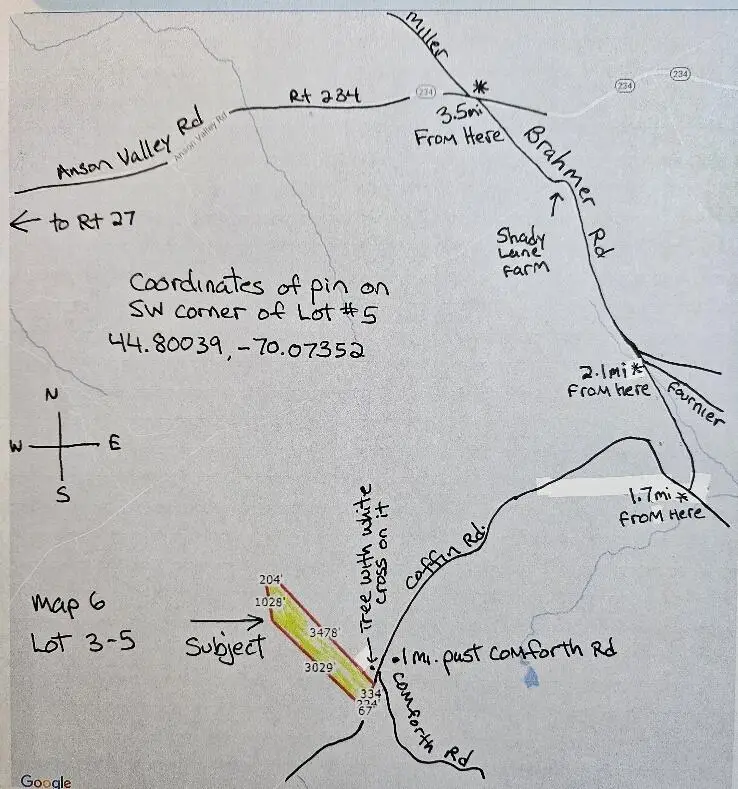 Miller
234
234
234
Rt 234
*
3.5mi
From Here
Anson Valley Rd
Anson Valley Rd
Brahmer Rd
← to Rt 27
Shady
Lane
Farm
Coordinates of pin on
SW corner of Lot #5
44.80039, -70.07352
2.1mi *
From here
Fournier
N
W E
S
1.7mi *
From Here
Tree with white
cross on it
Coffin Rd.
204'
1028'
3478'
3029'
334
67'
Map 6
Lot 3-5
Subject
.1 mi. past Comforth Rd
Comforth Rd
Google